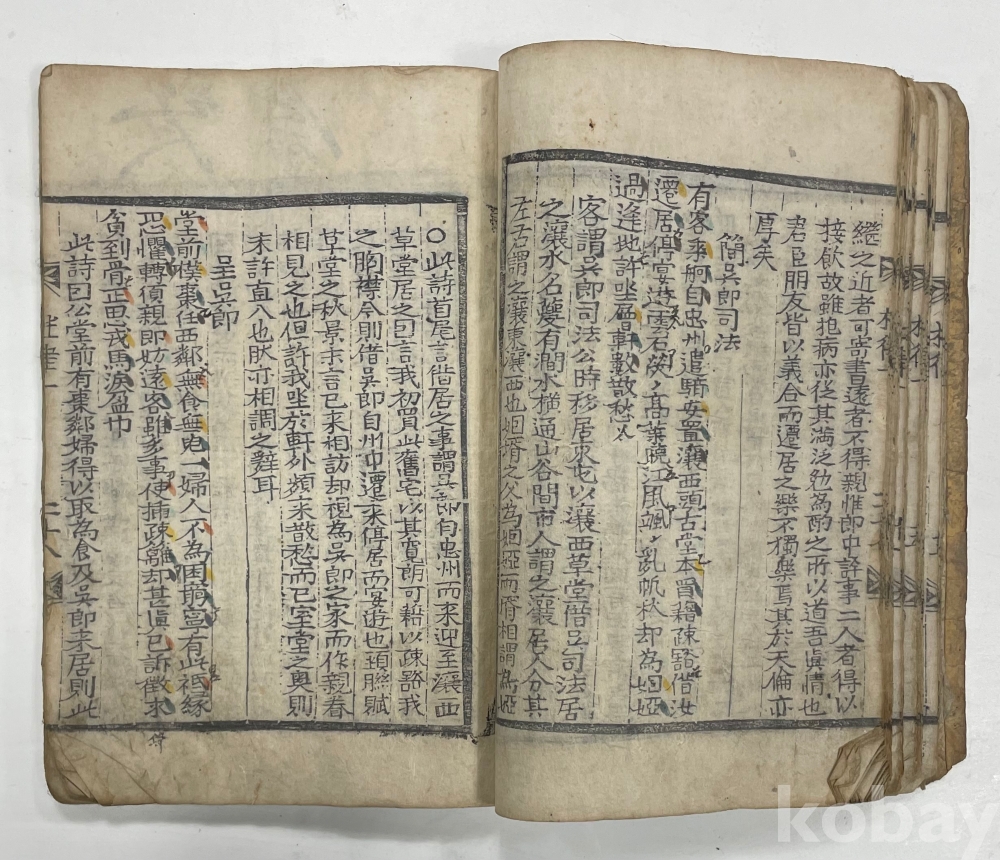 繼之近者可寄書遠者不得親惟郎中評事二人者得以
接飲故雖抱病亦從其滿泛勉為酌之所以道吾眞情也
君臣朋友皆以義合而遷居之樂不獨樂焉其於天倫亦
厚矣
簡吳郎司法
有客乘舸自忠州遣騎安置瀼西頭古堂本買藉疎豁借汝
遷居停宴遊雲石熒〻高葉曉江風颯〻亂帆秋却為姻婭
過逢地許坐曾軒數散愁
客謂吳郎司法公時移居東屯以瀼西草堂借吳司法居
之瀼水名夔有澗水橫通山谷間市人謂之瀼居人分其
左右謂之瀼東瀼西也姻壻之父為姻婭兩壻相謂為婭
○此詩首尾言借居之事謂吳郎自忠州而來迎至瀼西
草堂居之曰言我初買此舊宅以其寬朗可藉以疎豁我
之胸襟今則借吳郎自州中遷來停居而宴遊也頚聯賦
草堂之秋景末言己來相訪却視為吳郎之家而作親眷
相見之也但許我坐於軒外頻來散愁而已室堂之奧則
未許直入也此亦相調之辭耳
呈吳郎
堂前撲棗任西鄰無食無兒一婦人不為困窮寧有此祗緣
恐懼轉須親即妨遠客雖多事使揷疎籬却甚眞已訴徵求
貧到骨正思戎馬淚盈巾
此詩曰公堂前有棗鄰婦得以取為食及吳郎來居則此
kobay